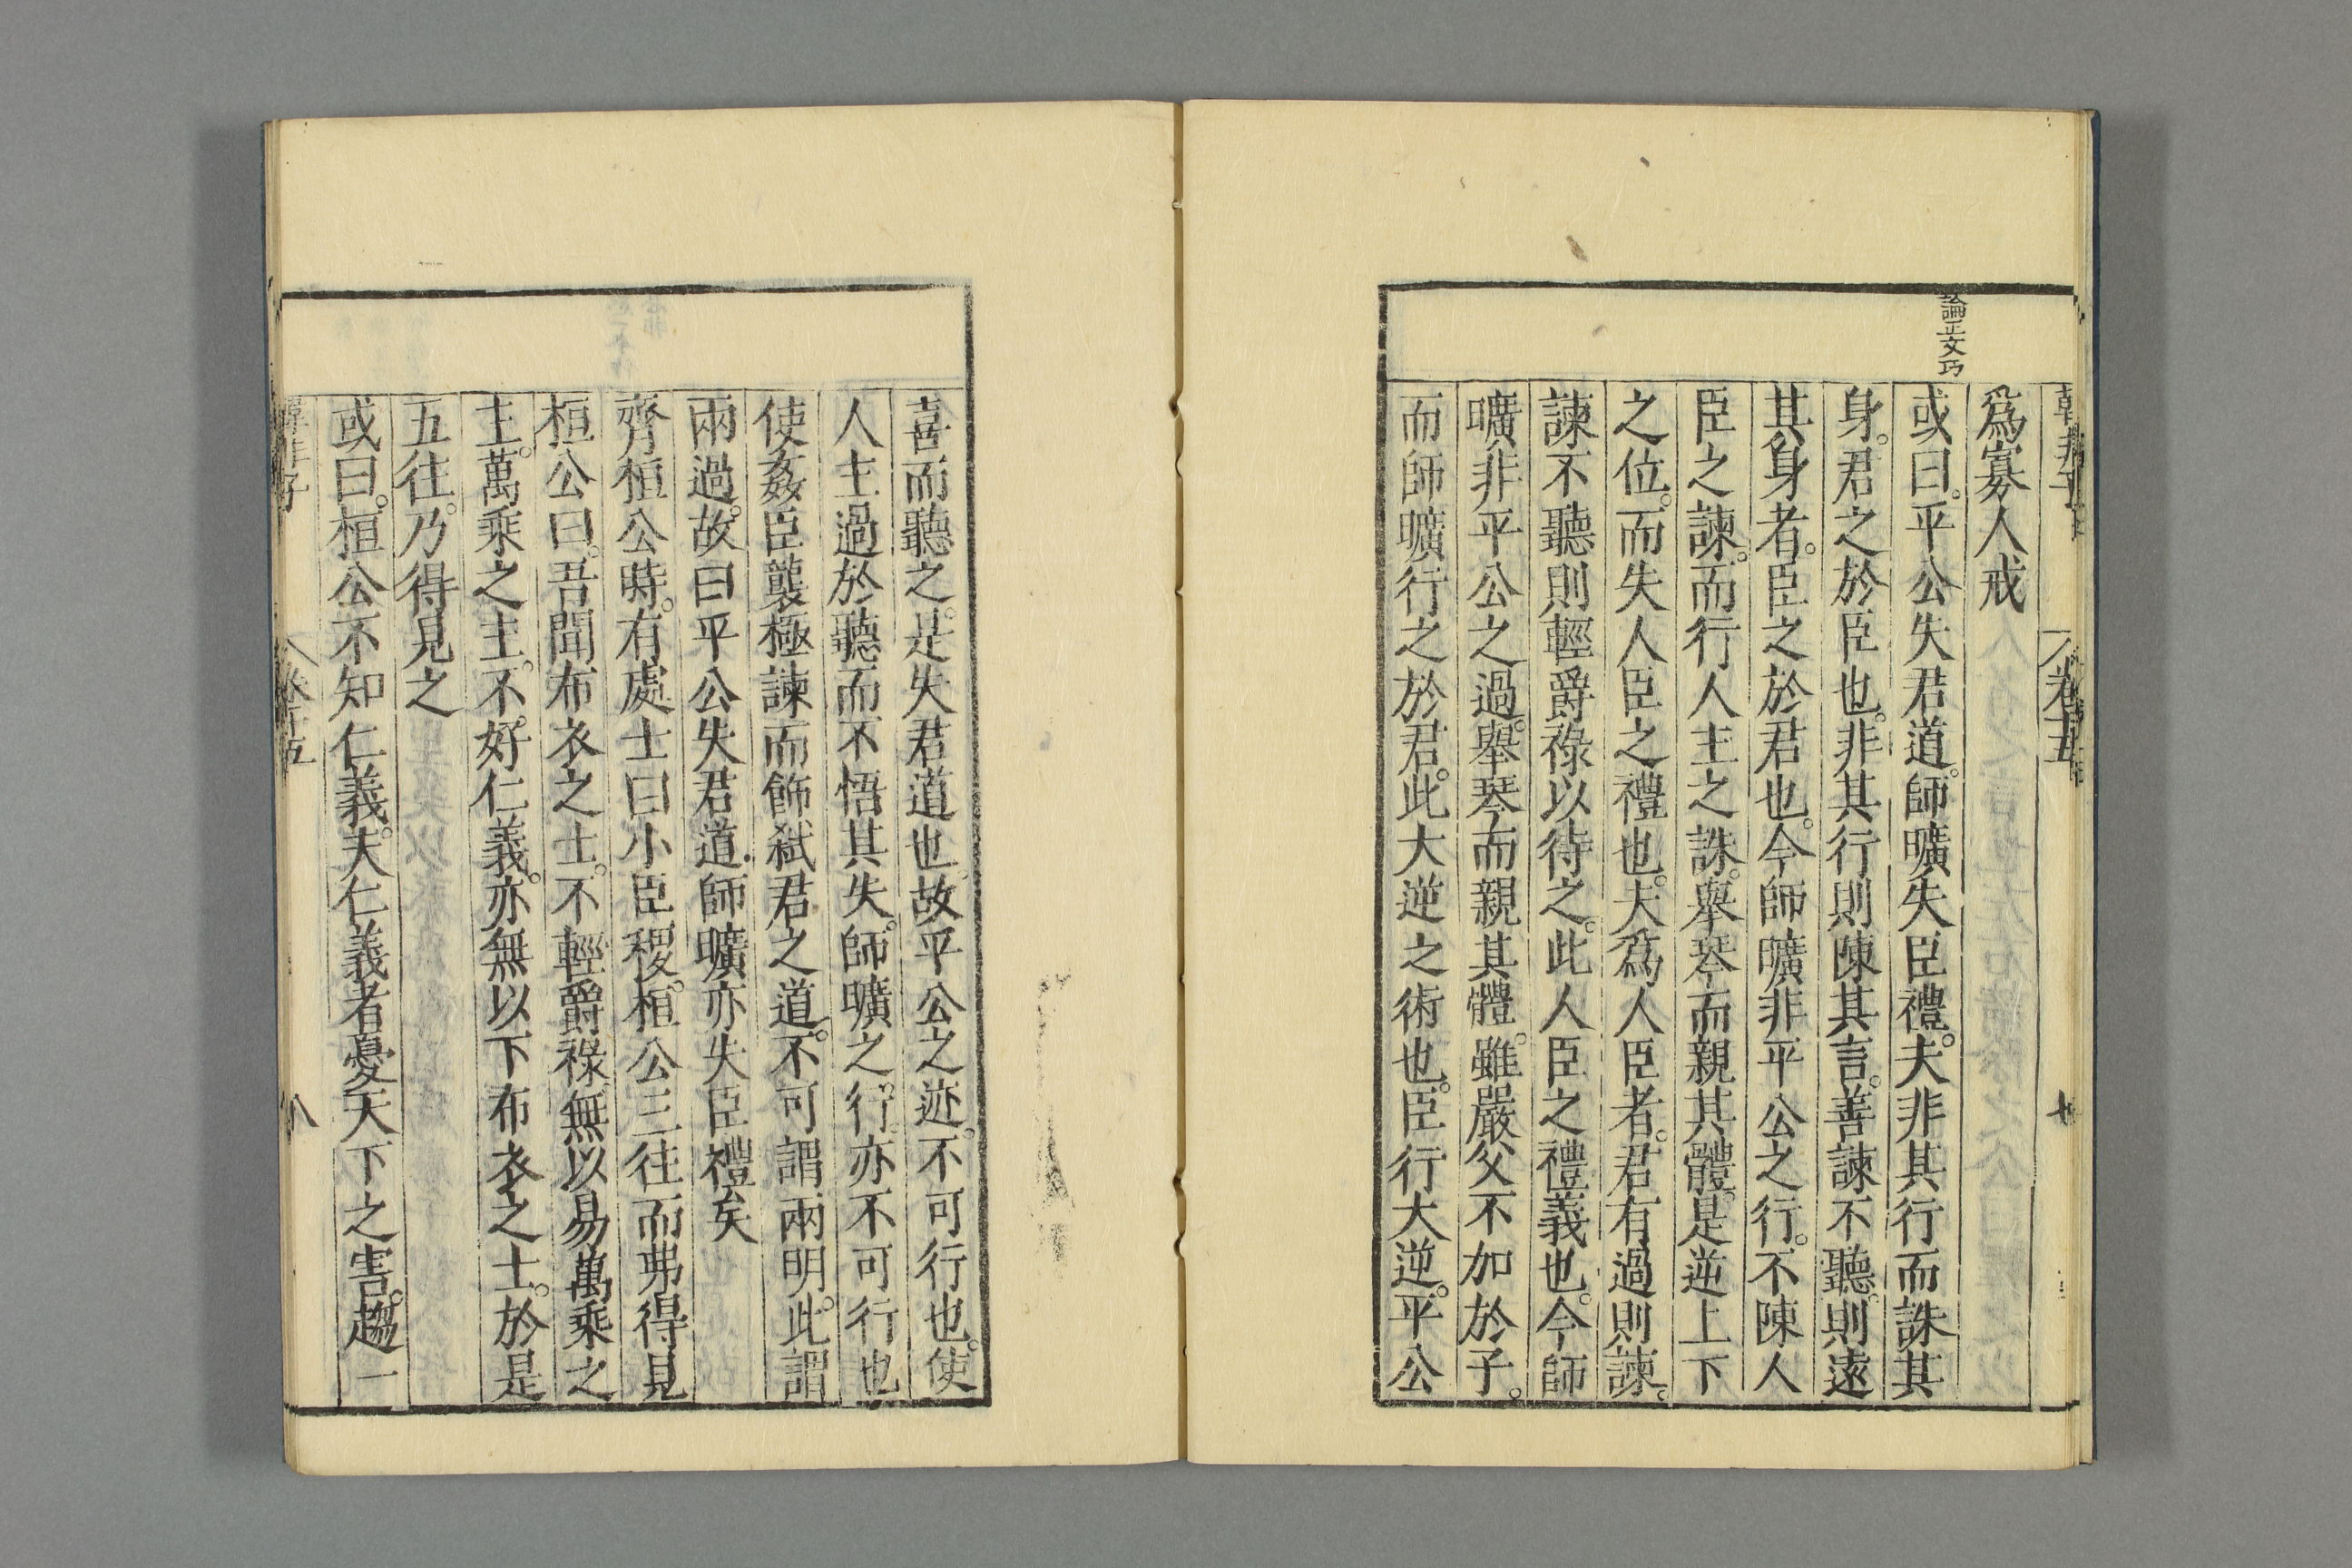 論正文巧
爲寡人戒
或曰。平公失君道。師曠失臣禮。夫非其行而誅其
身。君之於臣也。非其行則陳其言。善諫不聽。則遠
其身者。臣之於君也。今師曠非平公之行。不陳人
臣之諫。而行人主之誅。舉琴而親其體。是逆上下
之位。而失人臣之禮也。夫爲人臣者。君有過則諫。
諫不聽則輕爵祿以待之。此人臣之禮義也。今師
曠非平公之過。舉琴而親其體。雖嚴父不加於子。
而師曠行之於君。此大逆之術也。臣行大逆。平公
喜而聽之。是失君道也。故平公之迹。不可行也。使
人主過於聽而不悟其失。師曠之行。亦不可行也
使姦臣襲極諫而飾弑君之道。不可謂兩明。此謂
兩過。故曰平公失君道。師曠亦失臣禮矣
齊桓公時。有處士曰小臣稷。桓公三往而弗得見
桓公曰。吾聞布衣之士。不輕爵祿無以易萬乘之
主。萬乘之主。不好仁義。亦無以下布衣之士。於是
五往。乃得見之
或曰。桓公不知仁義。夫仁義者憂天下之害。趨一
韓非子 卷十五 八